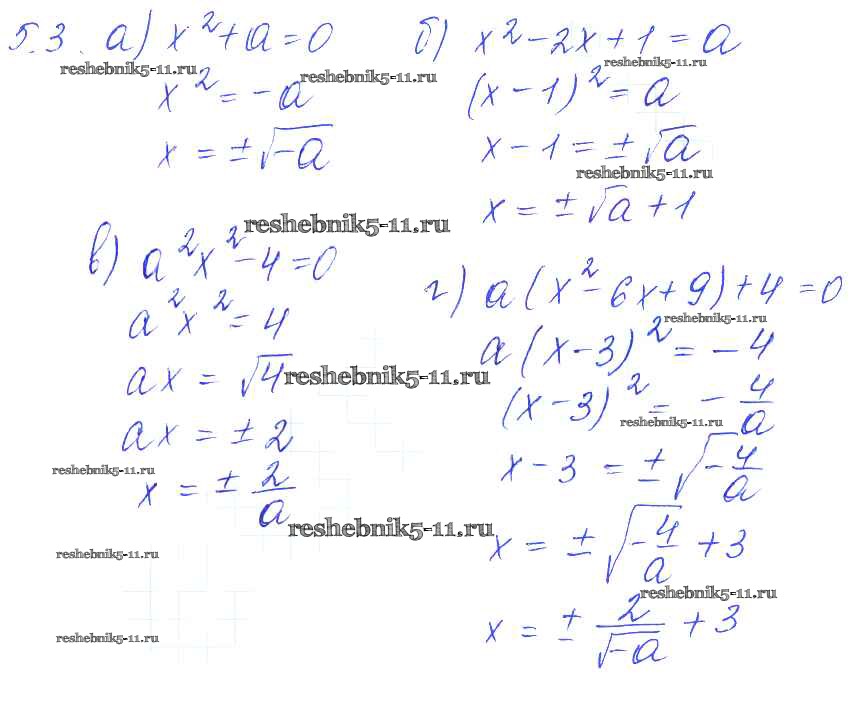 5.3. а) x² + a = 0
x² = -a
x = ±√-a
б) x² - 2x + 1 = a
(x - 1)² = a
x - 1 = ±√a
x = ±√a + 1
в) a²x² - 4 = 0
a²x² = 4
ax = √4
ax = ±2
x = ± 2/a
г) a(x² - 6x + 9) + 4 = 0
a(x - 3)² = -4
(x - 3)² = - 4/a
x - 3 = ±√(-4/a)
x = ±√(-4/a) + 3
x = ± 2/√-a + 3
reshebnik5-11.ru
reshebnik5-11.ru
reshebnik5-11.ru
reshebnik5-11.ru
reshebnik5-11.ru
reshebnik5-11.ru
reshebnik5-11.ru
reshebnik5-11.ru
reshebnik5-11.ru
reshebnik5-11.ru
reshebnik5-11.ru
reshebnik5-11.ru
reshebnik5-11.ru